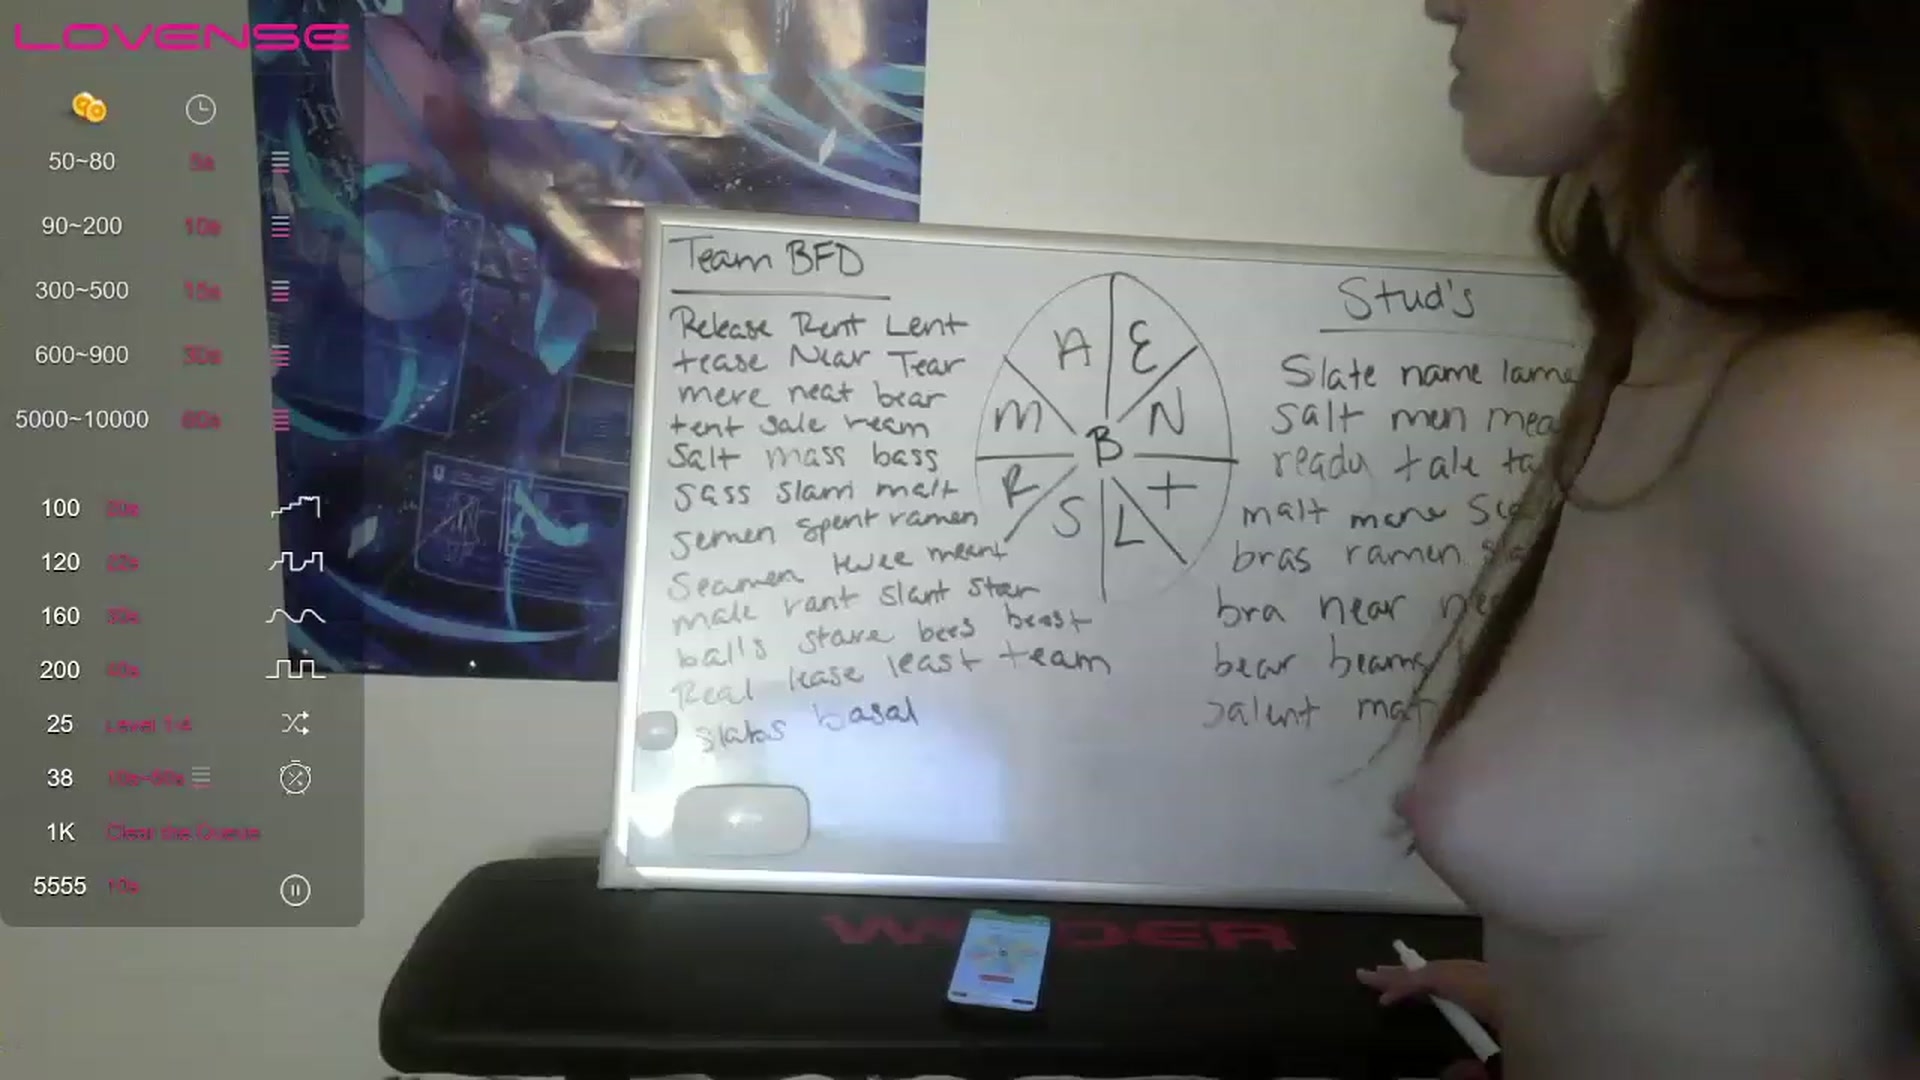 LOVENSE
50~80 5s
90~200 10s
300~500 15s
600~900 30s
5000~10000 60s
100 20s
120 22s
160 30s
200 40s
25 Level 1-4
38 10s~60s
1K Clear the Queue
5555 10s
Team BFD
Release Rent Lent
tease Near Tear
mere neat bear
tent sale ream
Salt mass bass
sass slam malt
semen spent ramen
Seamen meant
male rant slant star
balls stare bees beast
Real lease least team
slabs basal
A E
M N
B
R t
S L
Stud's
Slate name lame
Salt men
ready tale
malt mane
bras ramen
bra near
bear beams
salent